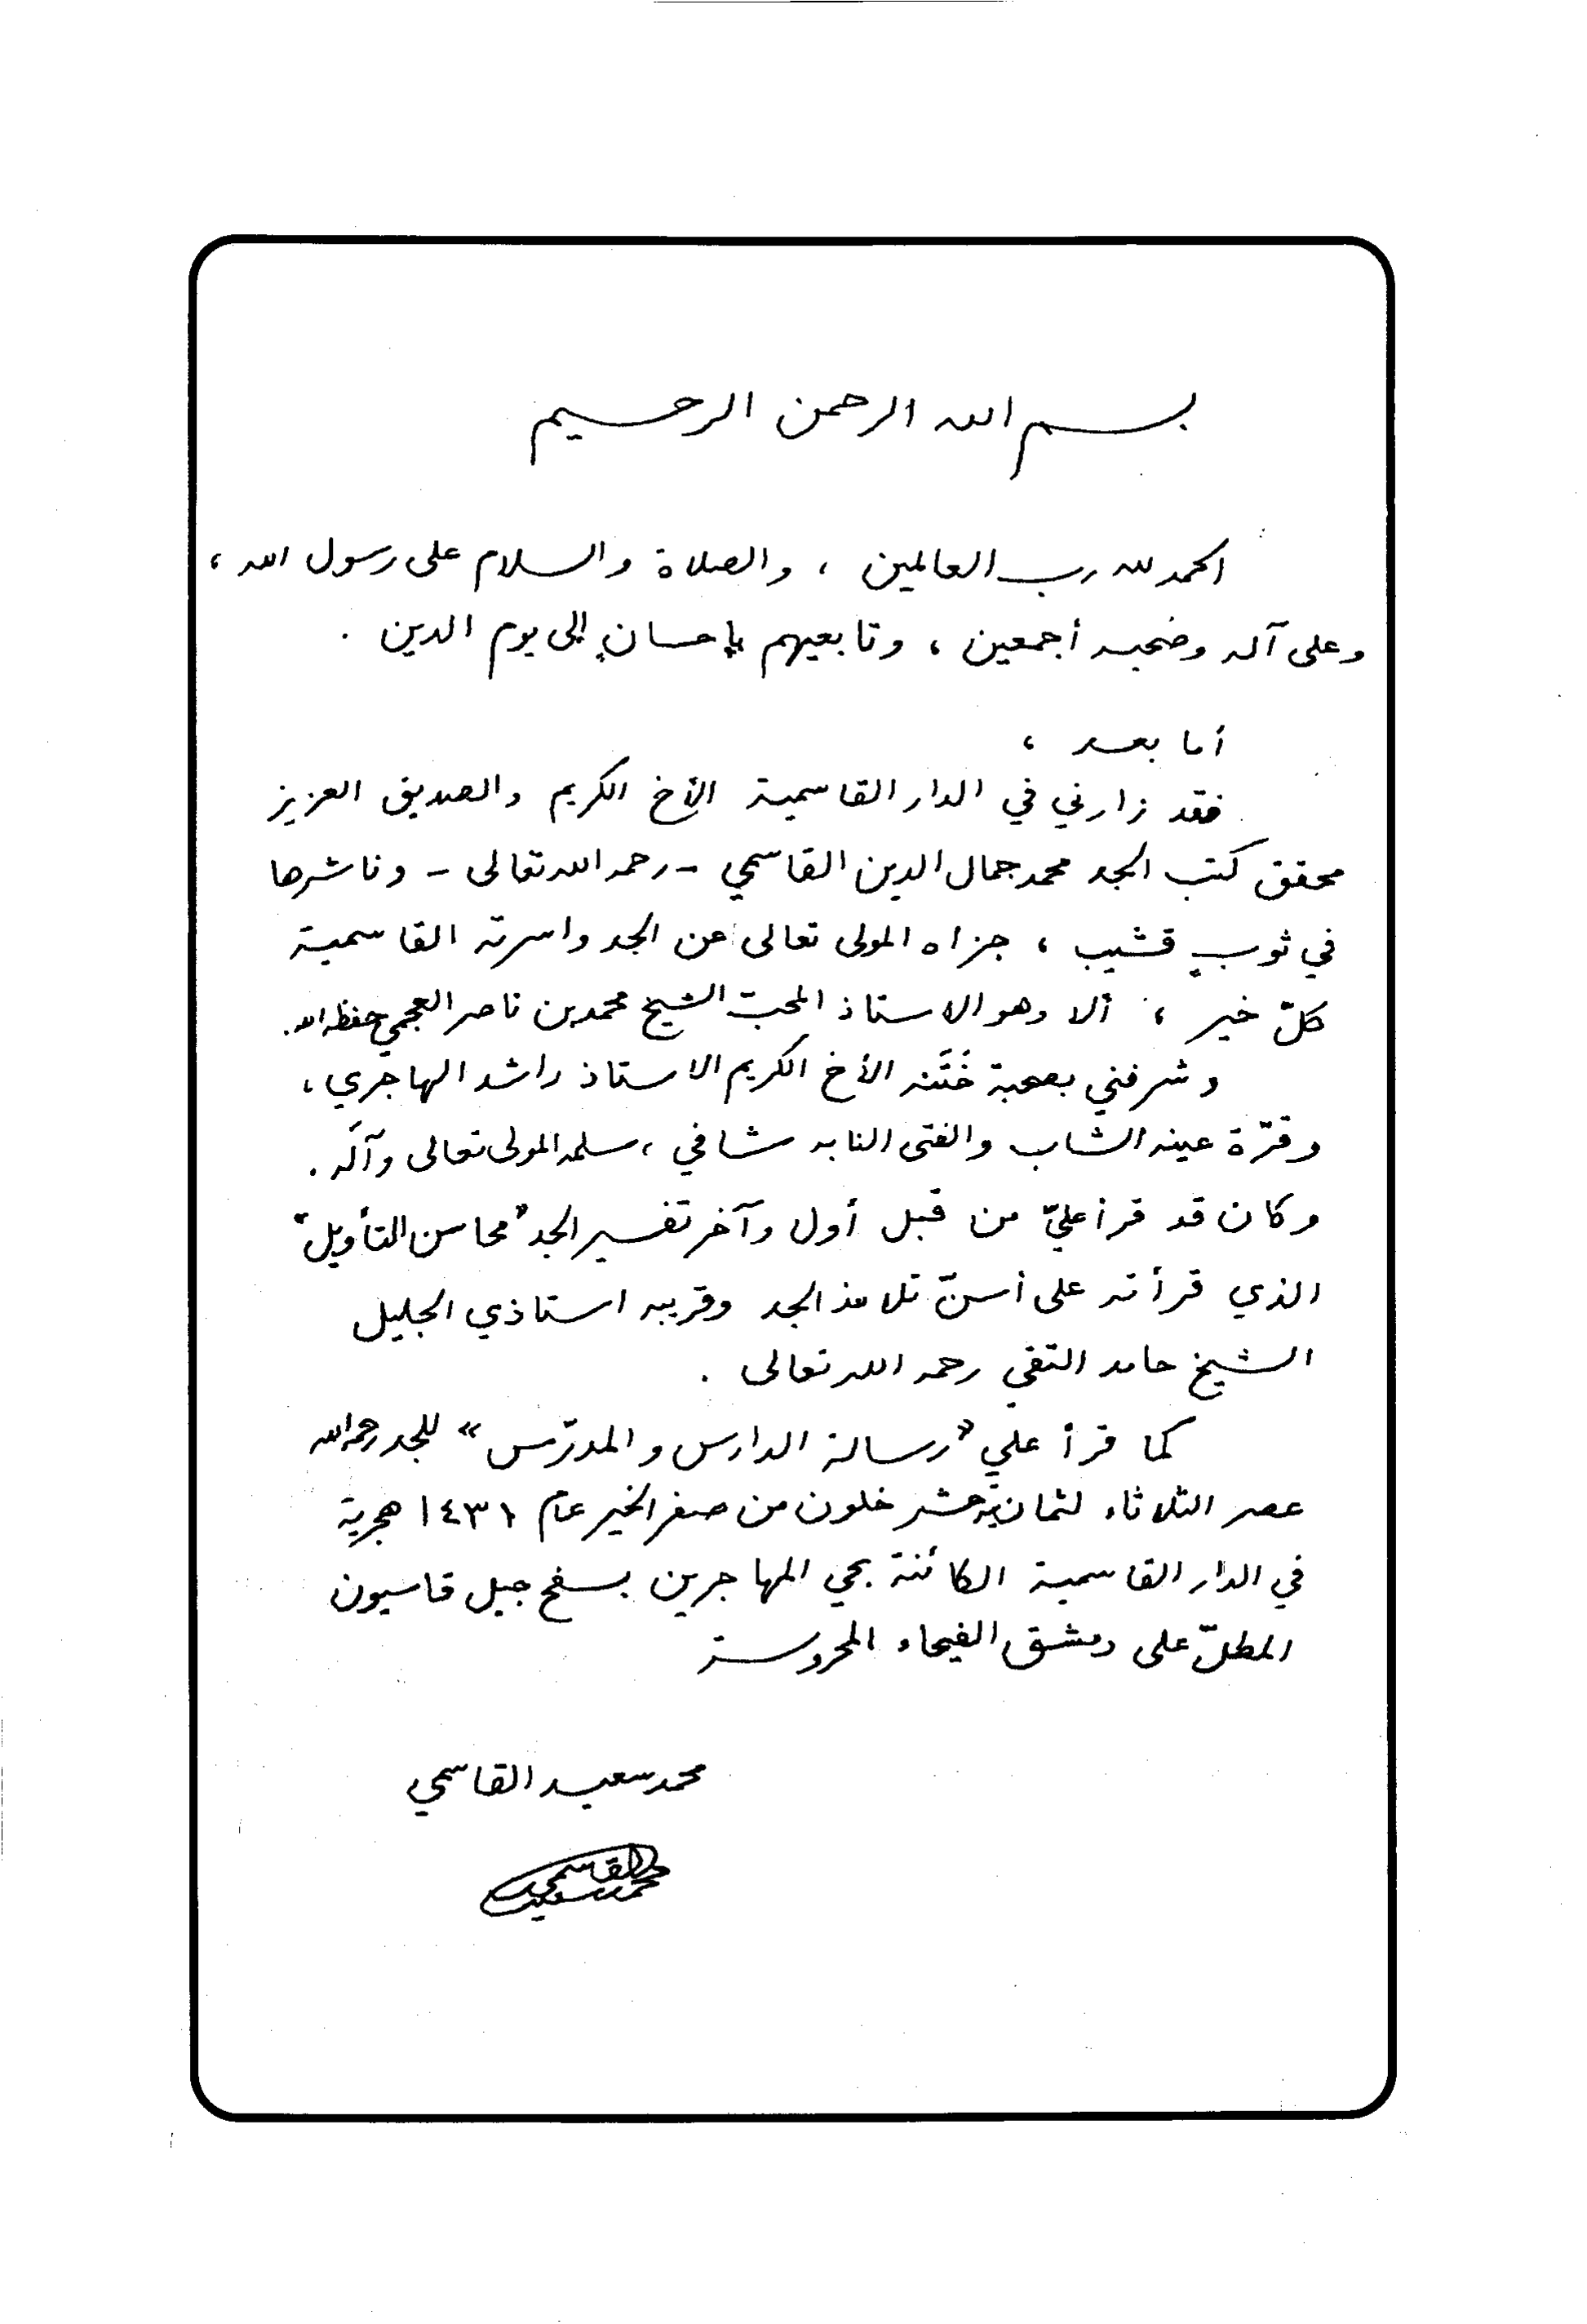 بسم الله الرحمن الرحيم
الحمد لله رب العالمين ، والصلاة والسلام على رسول الله ،
وعلى آله وصحبه أجمعين ، وتابعيهم بإحسانٍ إلى يوم الدين .
أما بعد ،
فقد زارني في الدار القاسمية الأخ الكريم والصديق العزيز
محقق كتب الجد محمد جمال الدين القاسمي - رحمه الله تعالى - وناشرها
في ثوبٍ قشيب ، جزاه المولى تعالى عن الجد واسرته القاسمية
كلّ خير ، ألا وهو الاستاذ المحبّ الشيخ محمد بن ناصر العجمي حفظه الله .
وشرفني بصحبة خَتَنه الأخ الكريم الاستاذ راشد الهاجري ،
وقرّة عينه الشاب والفتى النابه شافي ، سلمه المولى تعالى وآله .
وكان قد قرأ عليّ من قبل أول وآخر تفسير الجد "محاسن التأويل"
الذي قرأته على أسنّ تلامذ الجد وقريبه استاذي الجليل
الشيخ حامد التقي رحمه الله تعالى .
كما قرأ علي «رسالة الدارس والمدرّس» للجد رحمه الله
عصر الثلاثاء لثمانية عشر خلون من صفر الخير عام ١٤٣١ هجرية
في الدار القاسمية الكائنة بحي المهاجرين بسفح جبل قاسيون
المطلّ على دمشق الفيحاء المحروسة
محمد سعيد القاسمي
محمد سعيد القاسمي